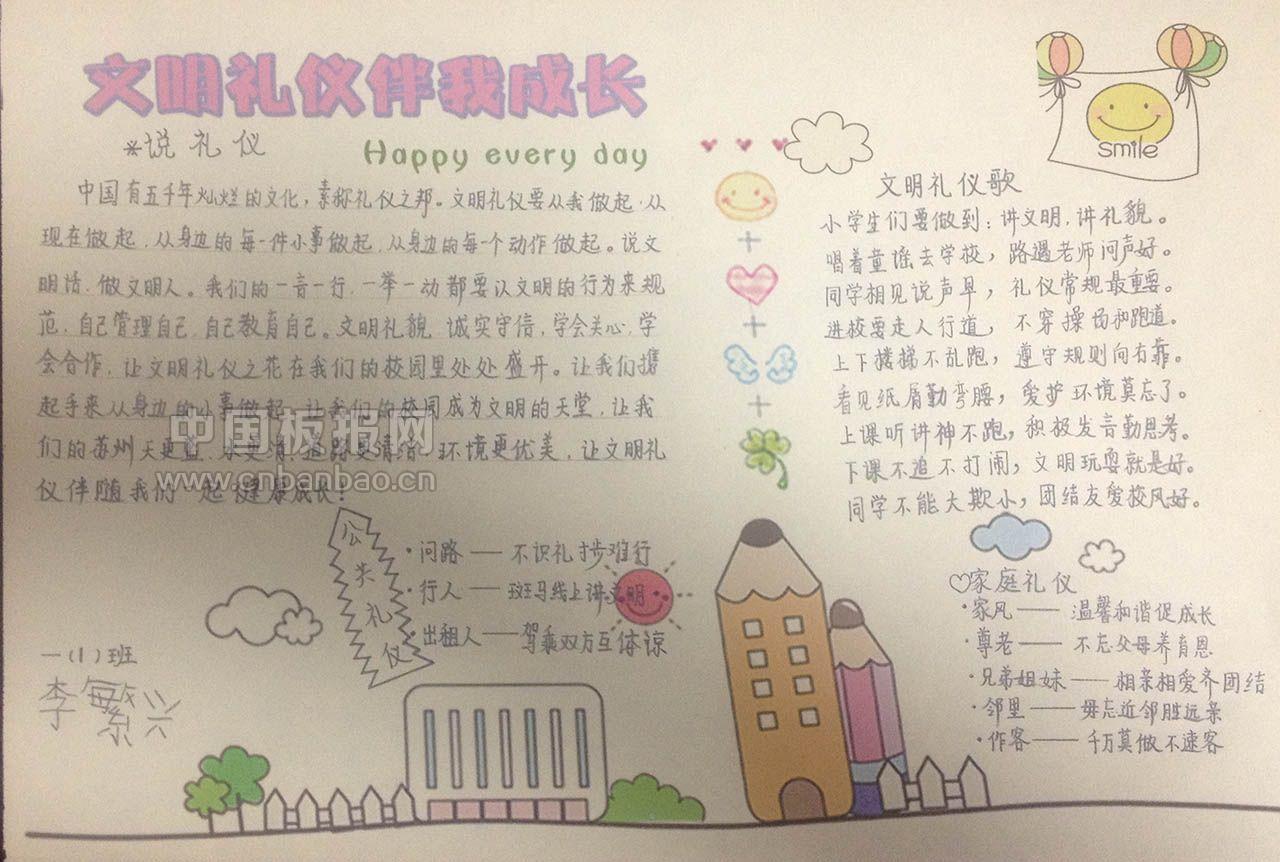 文明礼仪伴我成长
*说礼仪
Happy every day
中国有五千年灿烂的文化，素称礼仪之邦。文明礼仪要从我做起，从
现在做起，从身边的每一件小事做起，从身边的每一个动作做起。说文
明话，做文明人。我们的一言一行，一举一动都要以文明的行为来规
范，自己管理自己，自己教育自己。文明礼貌，诚实守信，学会关心，学
会合作，让文明礼仪之花在我们的校园里处处盛开。让我们携
起手来从身边的小事做起，让我们的校园成为文明的天堂，让我
们的苏州天更蓝，水更清，道路更清洁，环境更优美，让文明礼
仪伴随我们一起健康成长！
中国板报网
www.cnbanbao.cn
公共礼仪
·问路——不识礼节步难行
·行人——斑马线上讲文明
·出租人——驾乘双方互体谅
一（1）班
李繁兴
smile
文明礼仪歌
小学生们要做到：讲文明，讲礼貌。
唱着童谣去学校，路遇老师问声好。
同学相见说声早，礼仪常规最重要。
进校要走人行道，不穿操场和跑道。
上下楼梯不乱跑，遵守规则向右靠。
看见纸屑勤弯腰，爱护环境莫忘了。
上课听讲神不跑，积极发言勤思考。
下课不追不打闹，文明玩耍就是好。
同学不能大欺小，团结友爱校风好。
家庭礼仪
·家风——温馨和谐促成长
·尊老——不忘父母养育恩
·兄弟姐妹——相亲相爱齐团结
·邻里——毋忘近邻胜远亲
·作客——千万莫做不速客